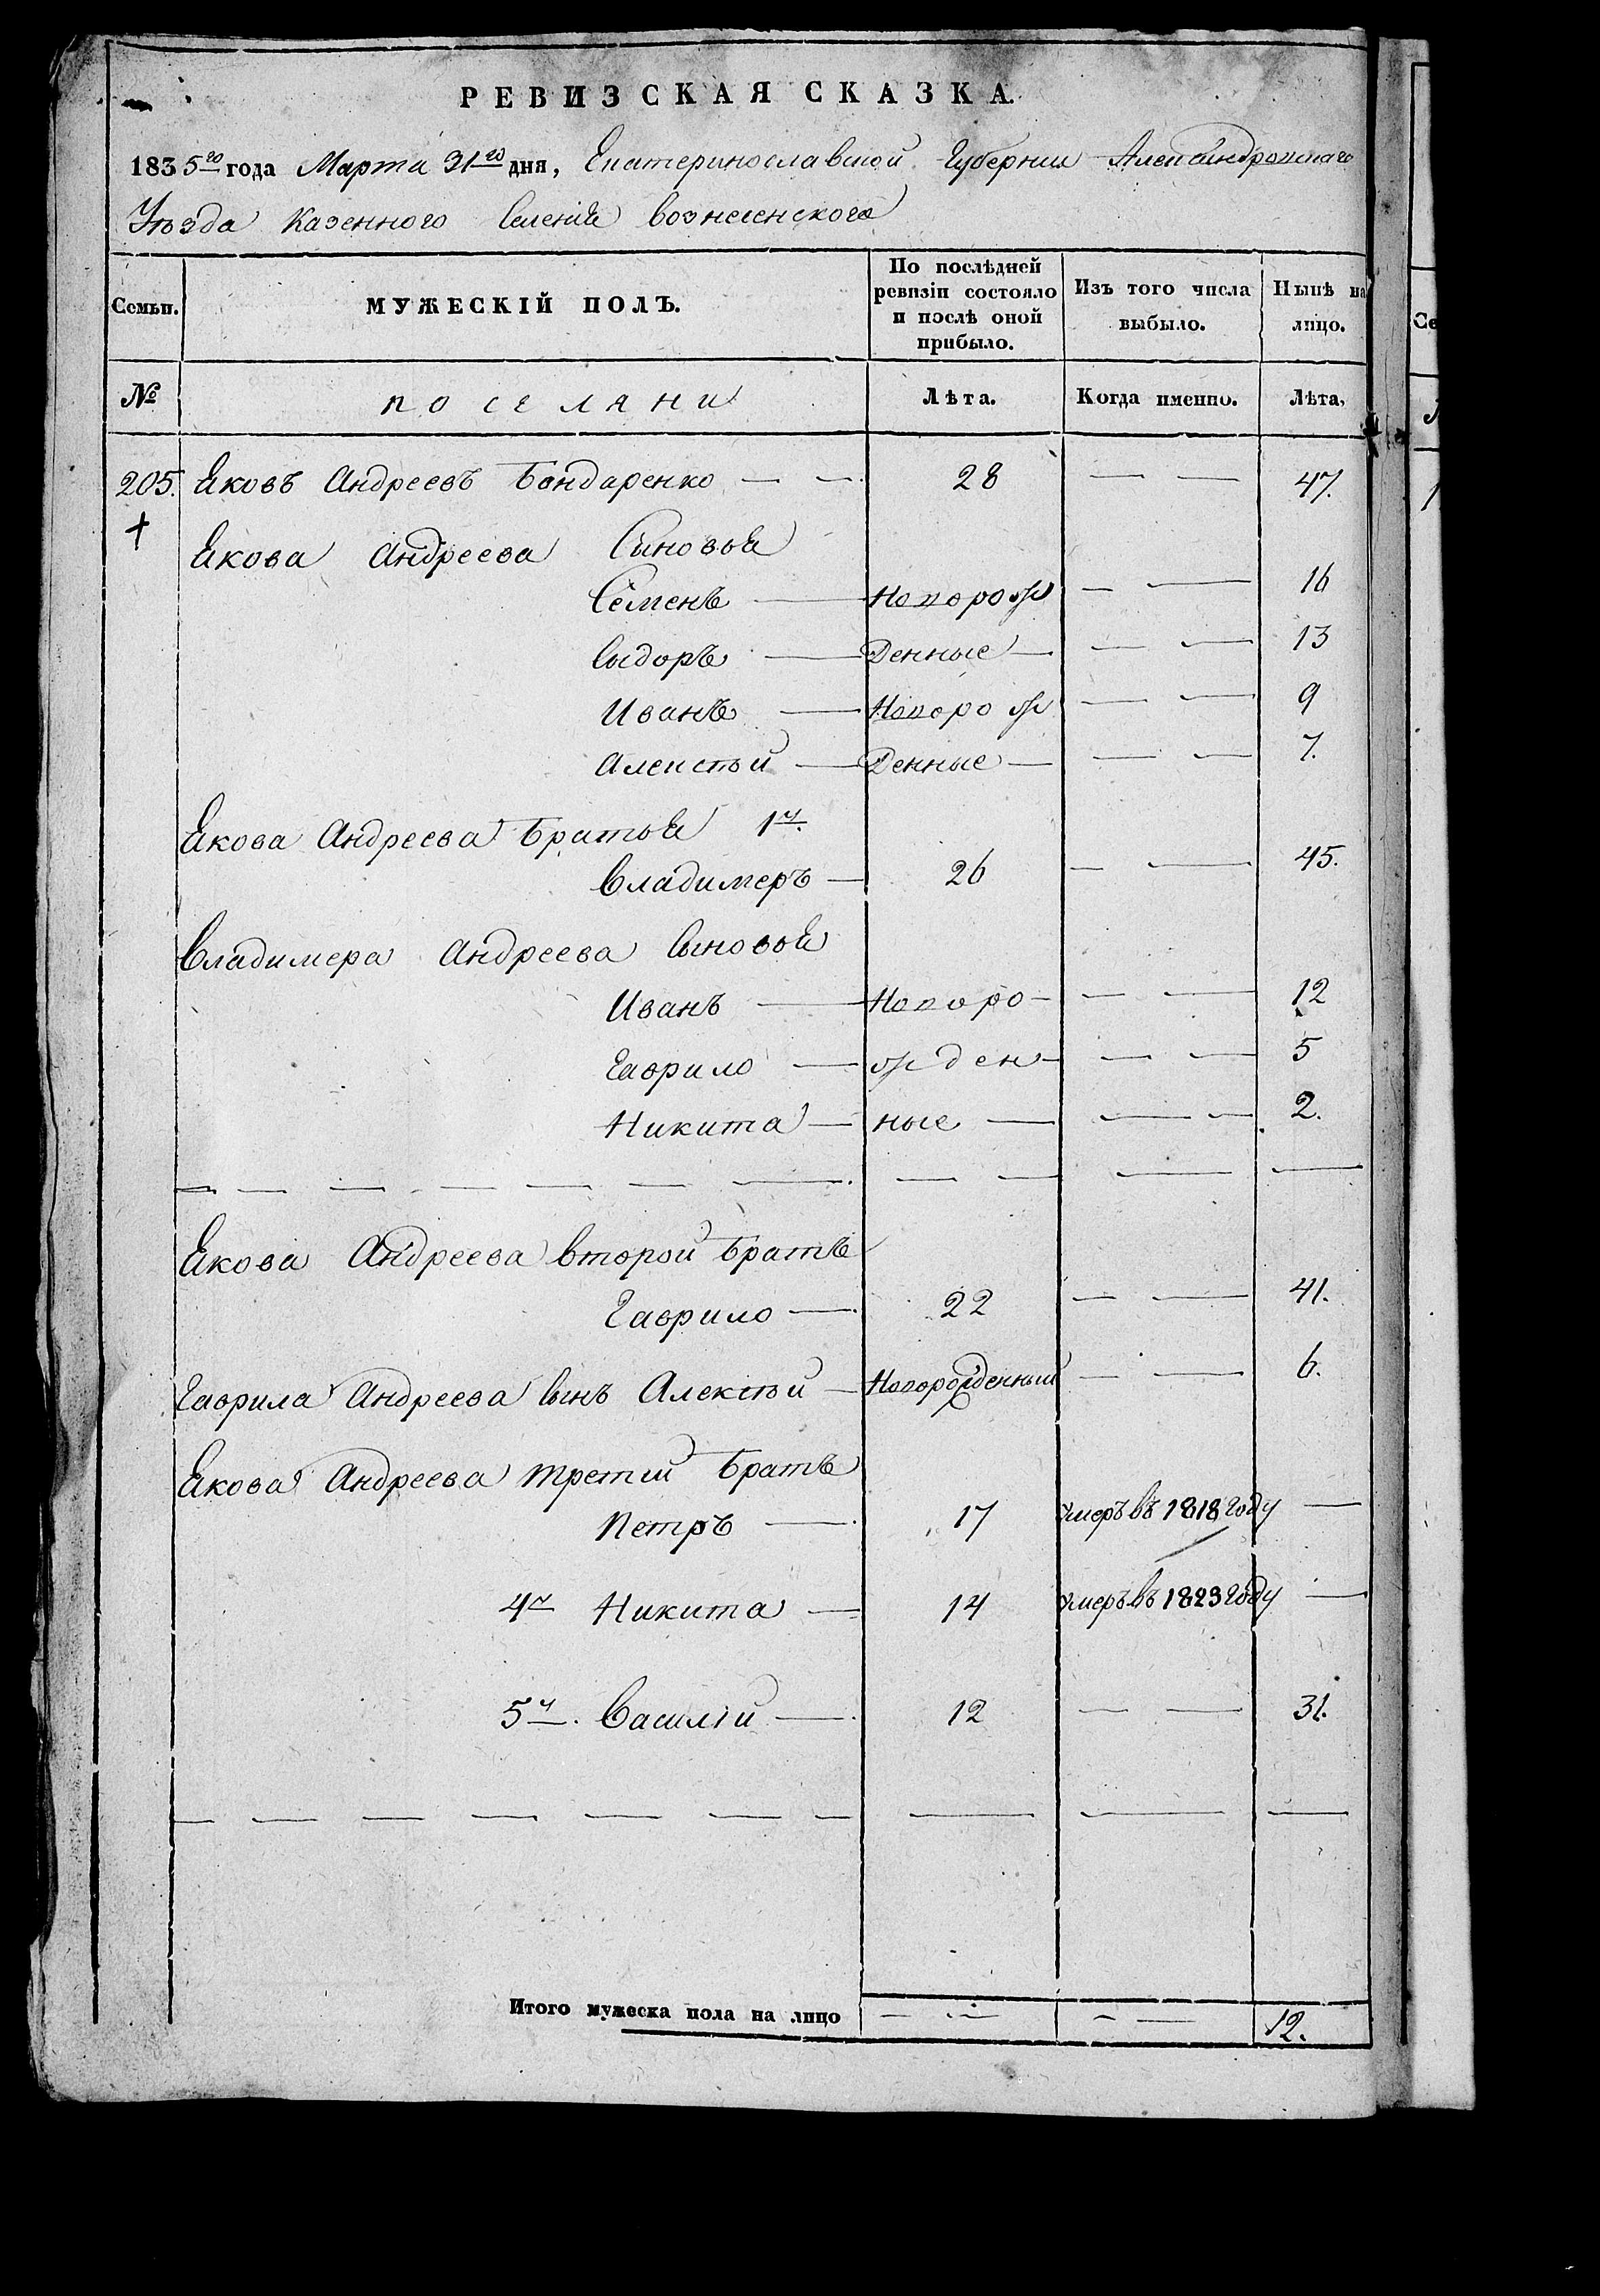 РЕВИЗСКАЯ СКАЗКА.
1835го года Марта 31го дня, Екатеринославской Губернии Александровскаго
Уѣзда Казенного Селенія Вознесенского
Семьи.
МУЖЕСКІЙ ПОЛЪ.
По послѣдней ревизіи состояло и послѣ оной прибыло.
Изъ того числа выбыло.
Нынѣ на лицо.
№ поселяни Лѣта. Когда именно. Лѣта.
205. Яковъ Андреевъ Бондаренко — — 28 — — 47.
Якова Андреева Синовья
Семенъ — Новорож — — 16
Сыдоръ — денные — — — 13
Иванъ — Новорож — — 9
Алексѣй — денные — — — 7.
Якова Андреева Братья 1й.
Владимеръ — 26 — — 45.
Владимера Андреева Сыновья
Иванъ — Новоро — — — 12
Гаврило — жден — — — 5
Никита — ные — — — 2.
Якова Андреева второй Братъ
Гаврило — 22 — — 41.
Гаврила Андреева Сынъ Алексѣй — Новорожденный — — 6.
Якова Андреева третий Братъ
Петръ — 17 Умеръ въ 1818 году —
4й Никита — 14 Умеръ въ 1823 году —
5й. Василій — 12 — — 31.
Итого мужеска пола на лицо — — — — 12.